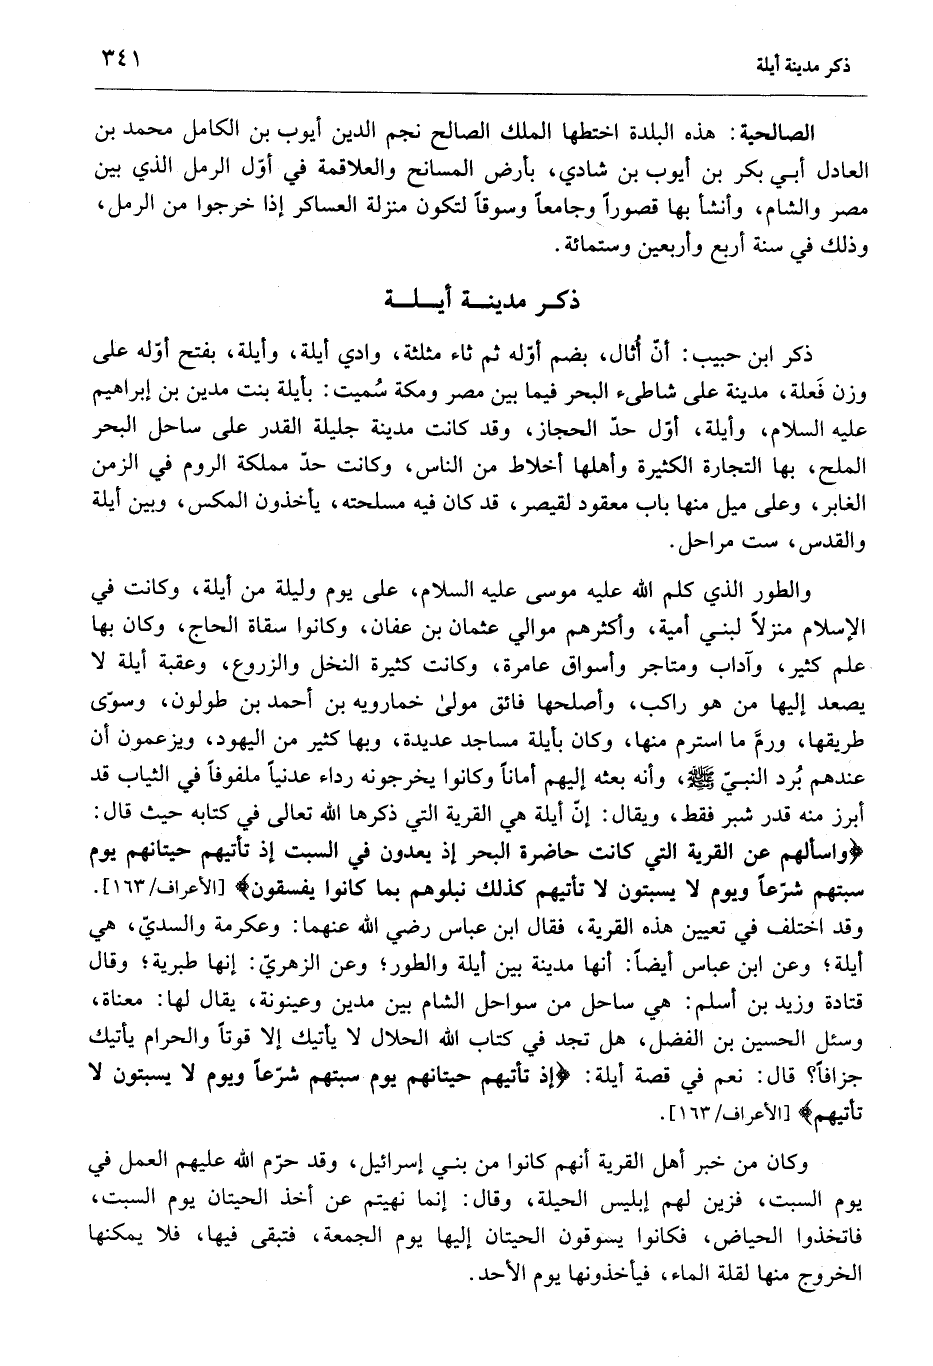 ذكر مدينة أيلة
٣٤١
الصالحية: هذه البلدة اختطها الملك الصالح نجم الدين أيوب بن الكامل محمد بن
العادل أبي بكر بن أيوب بن شادي، بأرض المسانح والعلاقمة في أوّل الرمل الذي بين
مصر والشام، وأنشأ بها قصوراً وجامعاً وسوقاً لتكون منزلة العساكر إذا خرجوا من الرمل،
وذلك في سنة أربع وأربعين وستمائة.
ذكر مدينة أيلة
ذكر ابن حبيب: أنّ أُثال، بضم أوّله ثم ثاء مثلثة، وادي أيلة، وأيلة، بفتح أوّله على
وزن فَعلة، مدينة على شاطىء البحر فيما بين مصر ومكة سُميت: بأيلة بنت مدين بن إبراهيم
عليه السلام، وأيلة، أوّل حدّ الحجاز، وقد كانت مدينة جليلة القدر على ساحل البحر
الملح، بها التجارة الكثيرة وأهلها أخلاط من الناس، وكانت حدّ مملكة الروم في الزمن
الغابر، وعلى ميل منها باب معقود لقيصر، قد كان فيه مسلحته، يأخذون المكس، وبين أيلة
والقدس، ست مراحل.
والطور الذي كلم الله عليه موسى عليه السلام، على يوم وليلة من أيلة، وكانت في
الإسلام منزلاً لبني أمية، وأكثرهم موالي عثمان بن عفان، وكانوا سقاة الحاج، وكان بها
علم كثير، وآداب ومتاجر وأسواق عامرة، وكانت كثيرة النخل والزروع، وعقبة أيلة لا
يصعد إليها من هو راكب، وأصلحها فائق مولىٰ خمارويه بن أحمد بن طولون، وسوّى
طريقها، ورمَّ ما استرم منها، وكان بأيلة مساجد عديدة، وبها كثير من اليهود، ويزعمون أن
عندهم بُرد النبيّ ﷺ، وأنه بعثه إليهم أماناً وكانوا يخرجونه رداء عدنياً ملفوفاً في الثياب قد
أبرز منه قدر شبر فقط، ويقال: إنّ أيلة هي القرية التي ذكرها الله تعالى في كتابه حيث قال:
﴿واسألهم عن القرية التي كانت حاضرة البحر إذ يعدون في السبت إذ تأتيهم حيتانهم يوم
سبتهم شرّعاً ويوم لا يسبتون لا تأتيهم كذلك نبلوهم بما كانوا يفسقون﴾ [الأعراف/١٦٣].
وقد اختلف في تعيين هذه القرية، فقال ابن عباس رضي الله عنهما: وعكرمة والسديّ، هي
أيلة؛ وعن ابن عباس أيضاً: أنها مدينة بين أيلة والطور؛ وعن الزهريّ: إنها طبرية؛ وقال
قتادة وزيد بن أسلم: هي ساحل من سواحل الشام بين مدين وعينونة، يقال لها: معناة،
وسئل الحسين بن الفضل، هل تجد في كتاب الله الحلال لا يأتيك إلا قوتاً والحرام يأتيك
جزافاً؟ قال: نعم في قصة أيلة: ﴿إذ تأتيهم حيتانهم يوم سبتهم شرّعاً ويوم لا يسبتون لا
تأتيهم﴾ [الأعراف/١٦٣].
وكان من خبر أهل القرية أنهم كانوا من بني إسرائيل، وقد حرّم الله عليهم العمل في
يوم السبت، فزين لهم إبليس الحيلة، وقال: إنما نهيتم عن أخذ الحيتان يوم السبت،
فاتخذوا الحياض، فكانوا يسوقون الحيتان إليها يوم الجمعة، فتبقى فيها، فلا يمكنها
الخروج منها لقلة الماء، فيأخذونها يوم الأحد.